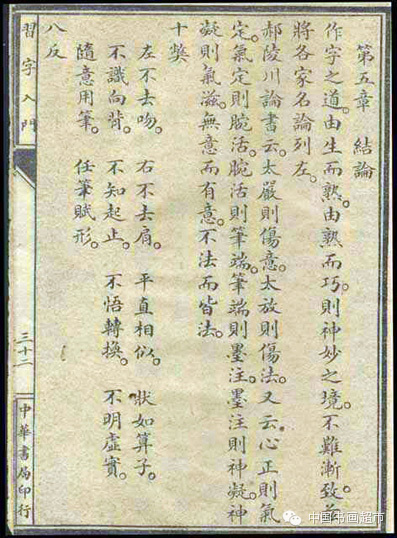 第五章　結論
作字之道。由生而熟。由熟而巧。則神妙之境。不難漸致。茲
將各家名論列左。
郝陵川論書云。太嚴則傷意。太放則傷法。又云。心正則氣
定。氣定則腕活。腕活則筆端。筆端則墨注。墨注則神凝。神
凝則氣滋。無意而有意。不法而皆法。
十獘
左不去吻。　右不去肩。　平直相似。　狀如算子。
不識向背。　不知起止。　不悟轉換。　不明虛實。
隨意用筆。　任筆賦形。
八反
習字入門
三十二
中華書局印行
中国书画超市